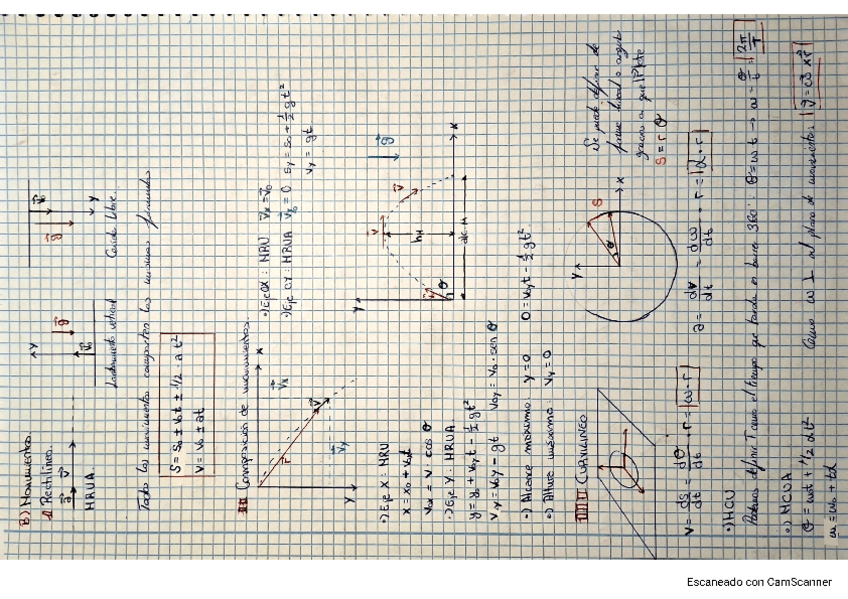 B) Movimientos
1) Rectilíneo
MRUA
Lanzamiento vertical
Caída libre.
Todos los movimientos comparten las mismas fórmulas
S = S₀ ± v₀t ± 1/2 · a t²
V = V₀ ± at
II Composición de movimientos.
•) Eje OX: MRU
•) Eje OY: MRUA
•) Eje X: MRU
x = x₀ + v₀ₓt
V₀ₓ = V · cos θ
•) Eje Y: MRUA
y = y₀ + v₀yt - 1/2 gt²
V₀y = V₀ · sen θ
•) Alcance máximo: y = 0
0 = v₀yt - 1/2 gt²
•) Altura máxima: Vy = 0
III CURVILINEO
Se puede definir de
forma lineal o angular
S = r θ
v = ds/dt = dθ/dt · r = |ω · r|
a = dv/dt = dω/dt · r = |α · r|
•) MCU
Podemos definir T como el tiempo que tarda en hacer 360º: θ = ωt → ω = θ/t = 2π/T
•) MCUA
θ = ω₀t + 1/2 αt²
Como ω ⊥ al plano de movimiento:
Escaneado con CamScanner